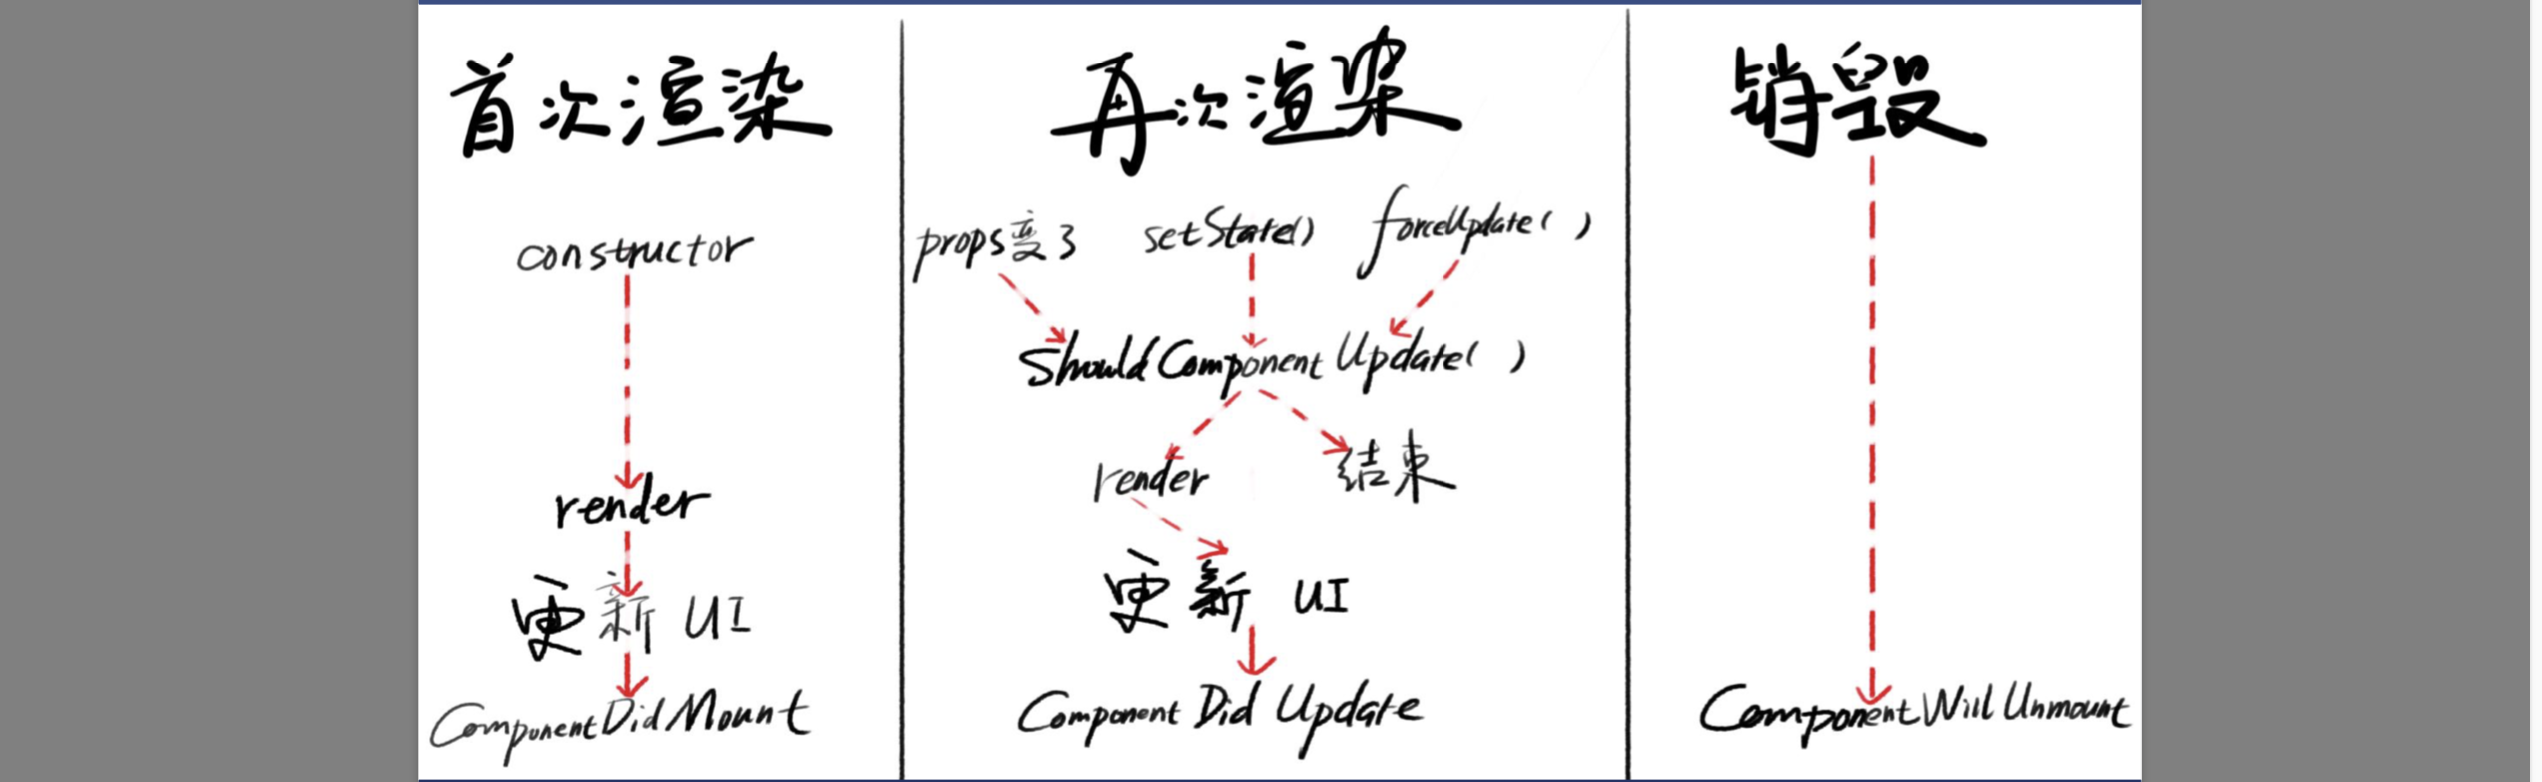 首次渲染
constructor
render
更新 UI
ComponentDidMount
再次渲染
props变了 setState() forceUpdate( )
ShouldComponentUpdate( )
render 结束
更新 UI
Component Did Update
销毁
ComponentWillUnmount